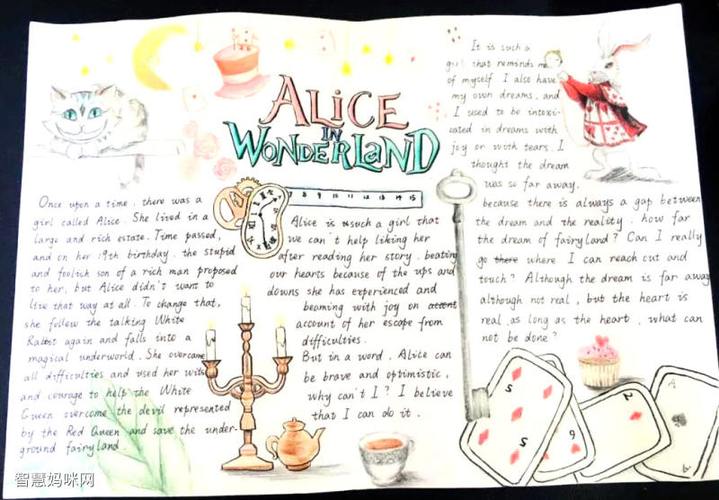 ALICE
IN
WONDERLAND
Once upon a time, there was a
girl called Alice. She lived in a
large and rich estate. Time passed,
and on her 19th birthday, the stupid
and foolish son of a rich man proposed
to her, but Alice didn't want to
live that way at all. To change that,
she follow the talking White
Rabbit again and falls into a
magical underworld. She overcame
all difficulties and used her wits
and courage to help the White
Queen overcome the devil represented
by the Red Queen and save the under-
ground fairyland
7 8 9 10 11 12 13 14 15
Alice is such a girl that
we can't help liking her
after reading her story. beating
our hearts because of the ups and
downs she has experienced and
beaming with joy on
account of her escape from
difficulties.
But in a word, Alice can
be brave and optimistic,
why can't I? I believe
that I can do it.
It is such a
girl that reminds me
of myself. I also have
my own dreams, and
I used to be intoxi-
cated in dreams with
joy or with tears. I
thought the dream
was so far away.
because there is always a gap between
the dream and the reality. how far
the dream of fairyland? Can I really
go there where I can reach out and
touch? Although the dream is far away
although not real, but the heart is
real, as long as the heart, what can
not be done?
5
5
6
2
智慧妈咪网